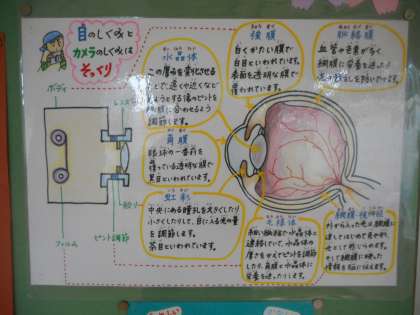 目のしくみと
カメラのしくみは
そっくり
ボディ
レンズ
絞り
フィルム
ピント調節
水晶体
この厚みを変化させる
ことで、遠くや近くなど
見ようとする像のピントを
網膜に合わせるよう
調節します。
角膜
眼球の一番前を
覆っている透明な膜で
黒目といわれています。
虹彩
中央にある瞳孔を大きくしたり
小さくしたりして、目に入る光の量
を調節します。
茶目といわれています。
強膜
白くかたい膜で
白目といわれています。
表面を透明な膜で
覆われています。
脈絡膜
血管や色素が多く
網膜に栄養を送ったり
毛様体
細い繊維で水晶体と
連絡していて、水晶体の
厚さをかえてピントを調節
したり、角膜と水晶体に
栄養を送ったりします。
網膜・視神経
外から入った光は網膜に
達してはじめて色や形、
光として感じられます。
そして網膜に映った
情報を脳に伝えます。